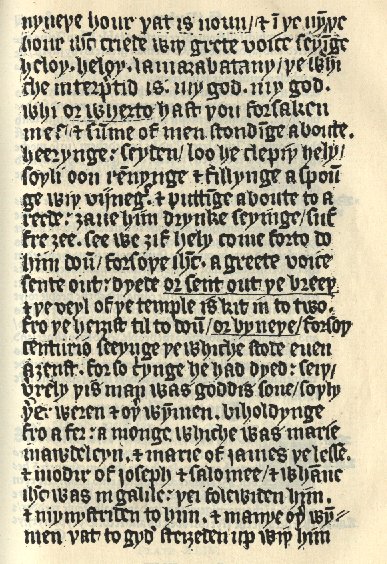 nyneye hour yat is noun / ⁊ ī ye nȳye
hour ihc̄ criede wiy grete voice seyīge
heloy. heloy. lamazabatany / ye whi
che interp̄tid is. my god. my god.
whi or wherto hast you forsaken
me / ⁊ sūme of men stondīge aboute.
heerynge: seyden / loo he clepiy hely /
soyli oon rēnynge ⁊ fillynge a spou
ge wiy vijneg̉. ⁊ puttīge aboute to a
reede: ȝaue him drynke seyinge / suf
fre ȝee. see we ȝif hely come forto do
him doū / forsoye ihc̄. a greete voice
sente out: dyede or sent out ye breey
⁊ ye veyl of ye temple is kit in to two.
fro ye heiȝist til to doū / or byneye / forsoy
centurio seeynge ye whiche stode euen
aȝenst. for so cryinge he had dyed: seiy /
verely yis man was goddis sone / soyly
yer weren ⁊ oy̓ wȳmen. biholdynge
fro a fer: a monge whiche was marie
mawdeleyn. ⁊ marie of iames ye lesse.
⁊ modir of joseph ⁊ salomee / ⁊ whāne
ihc̄ was in galile: yei folewiden him.
⁊ mynystriden to him. ⁊ manye oy̓ wȳ
men yat to gyd̓ steiȝeden up wiy him